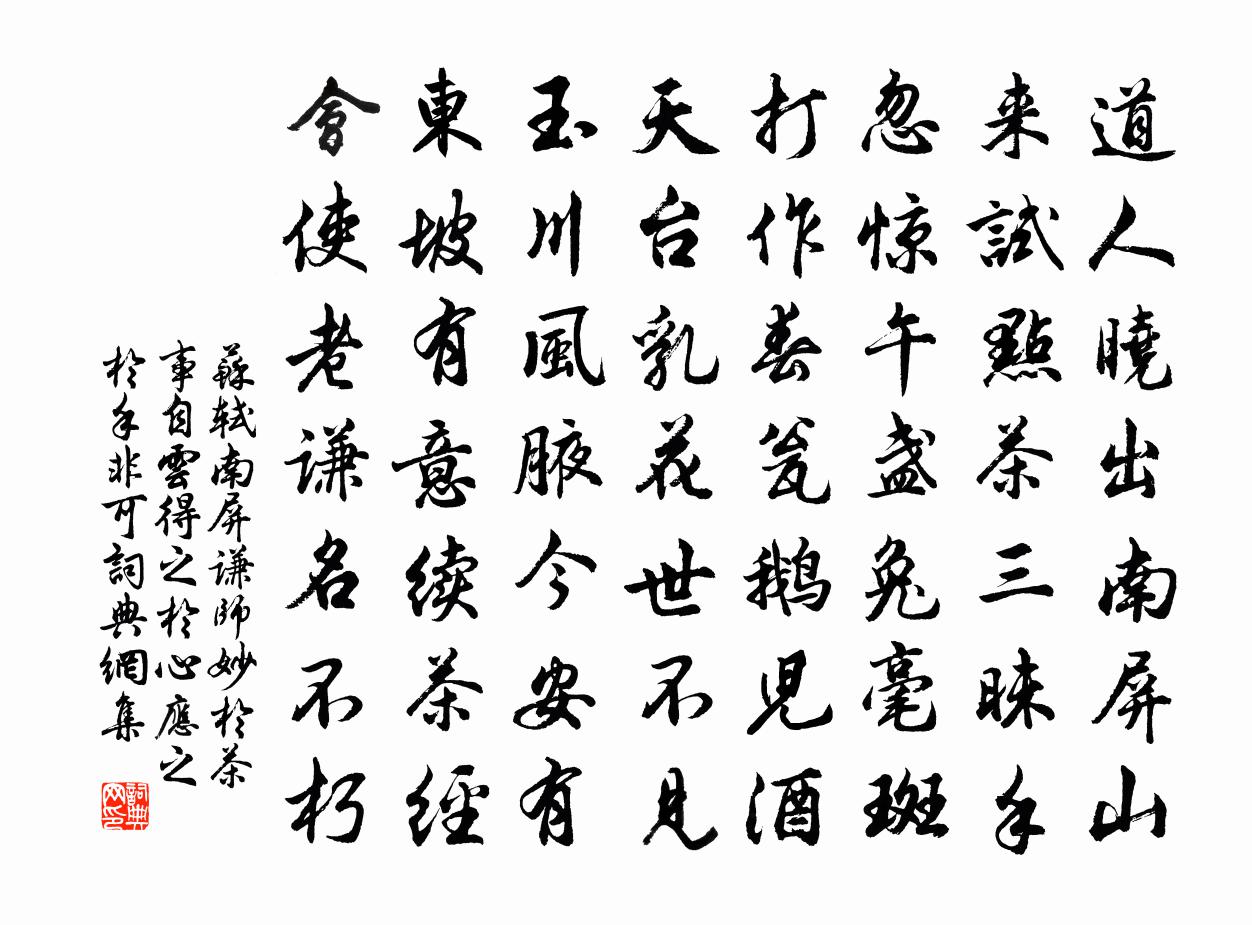 道人曉出南屏山
来試點茶三昧手
忽惊午盞兔毫斑
打作春瓮鹅児酒
天台乳花世不見
玉川風腋今安有
東坡有意续茶經
會使老谦名不朽
蘇軾南屏谦師妙於茶
事自雲得之於心應之
於手非可詞典網集
詞典网印